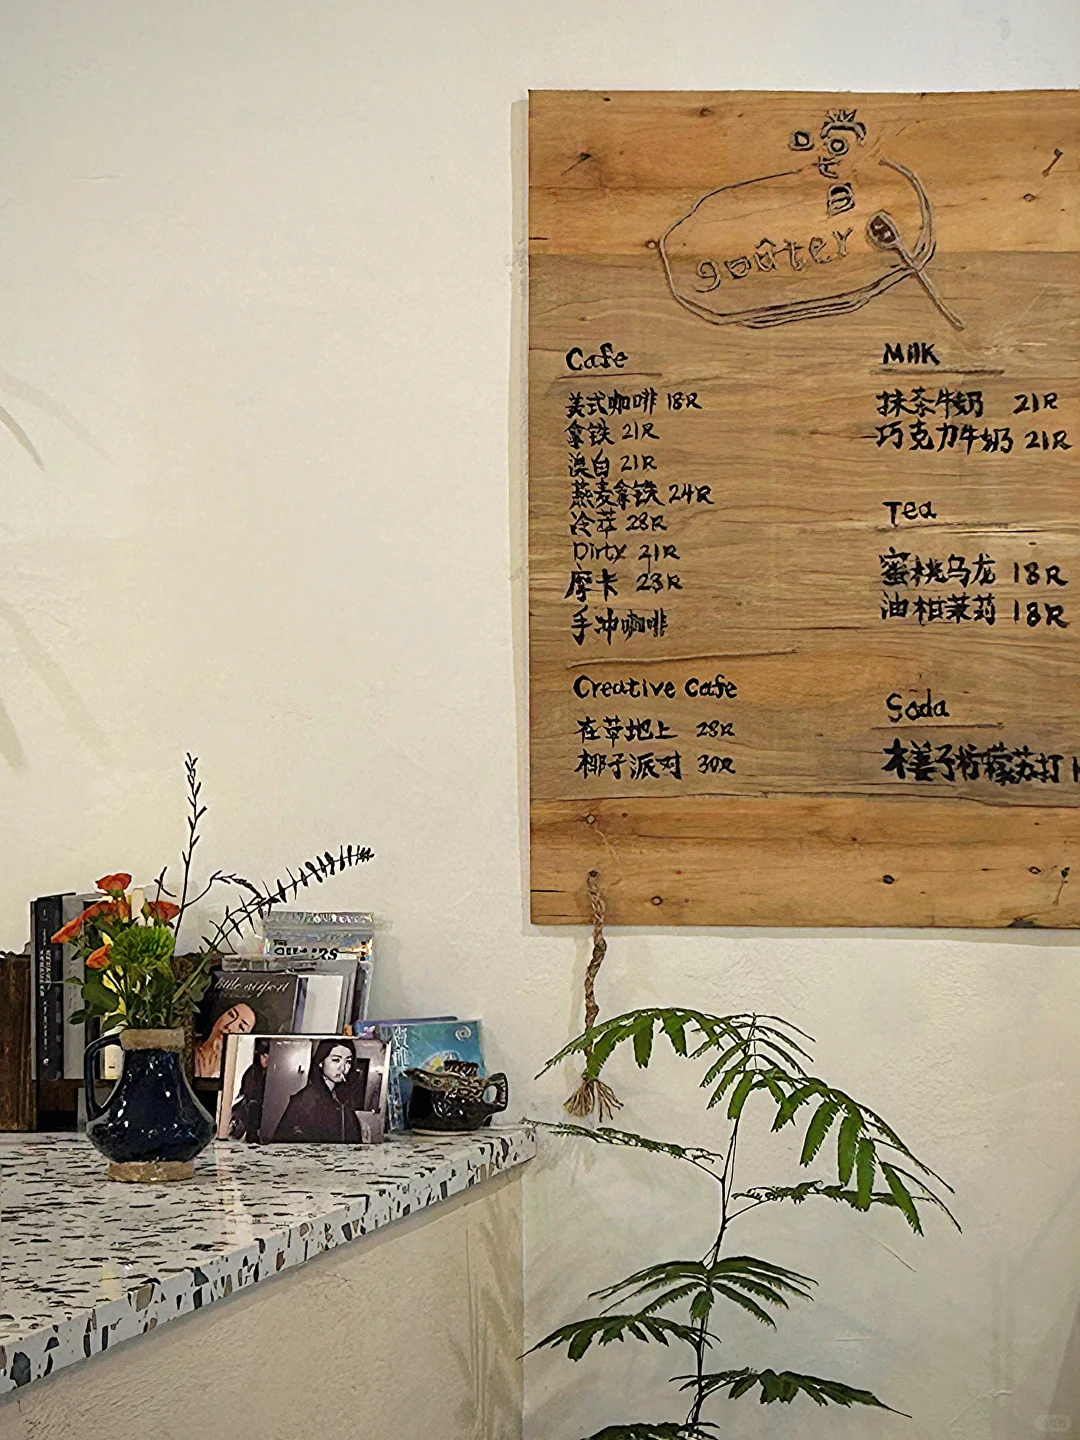 goûter
Cafe
美式咖啡 18R
拿铁 21R
澳白 21R
燕麦拿铁 24R
冷萃 28R
Dirty 21R
摩卡 23R
手冲咖啡
Creative Cafe
在草地上 28R
椰子派对 30R
Milk
抹茶牛奶 21R
巧克力牛奶 21R
Tea
蜜桃乌龙 18R
油柑茉莉 18R
Soda
木姜子柠檬苏打
little airport